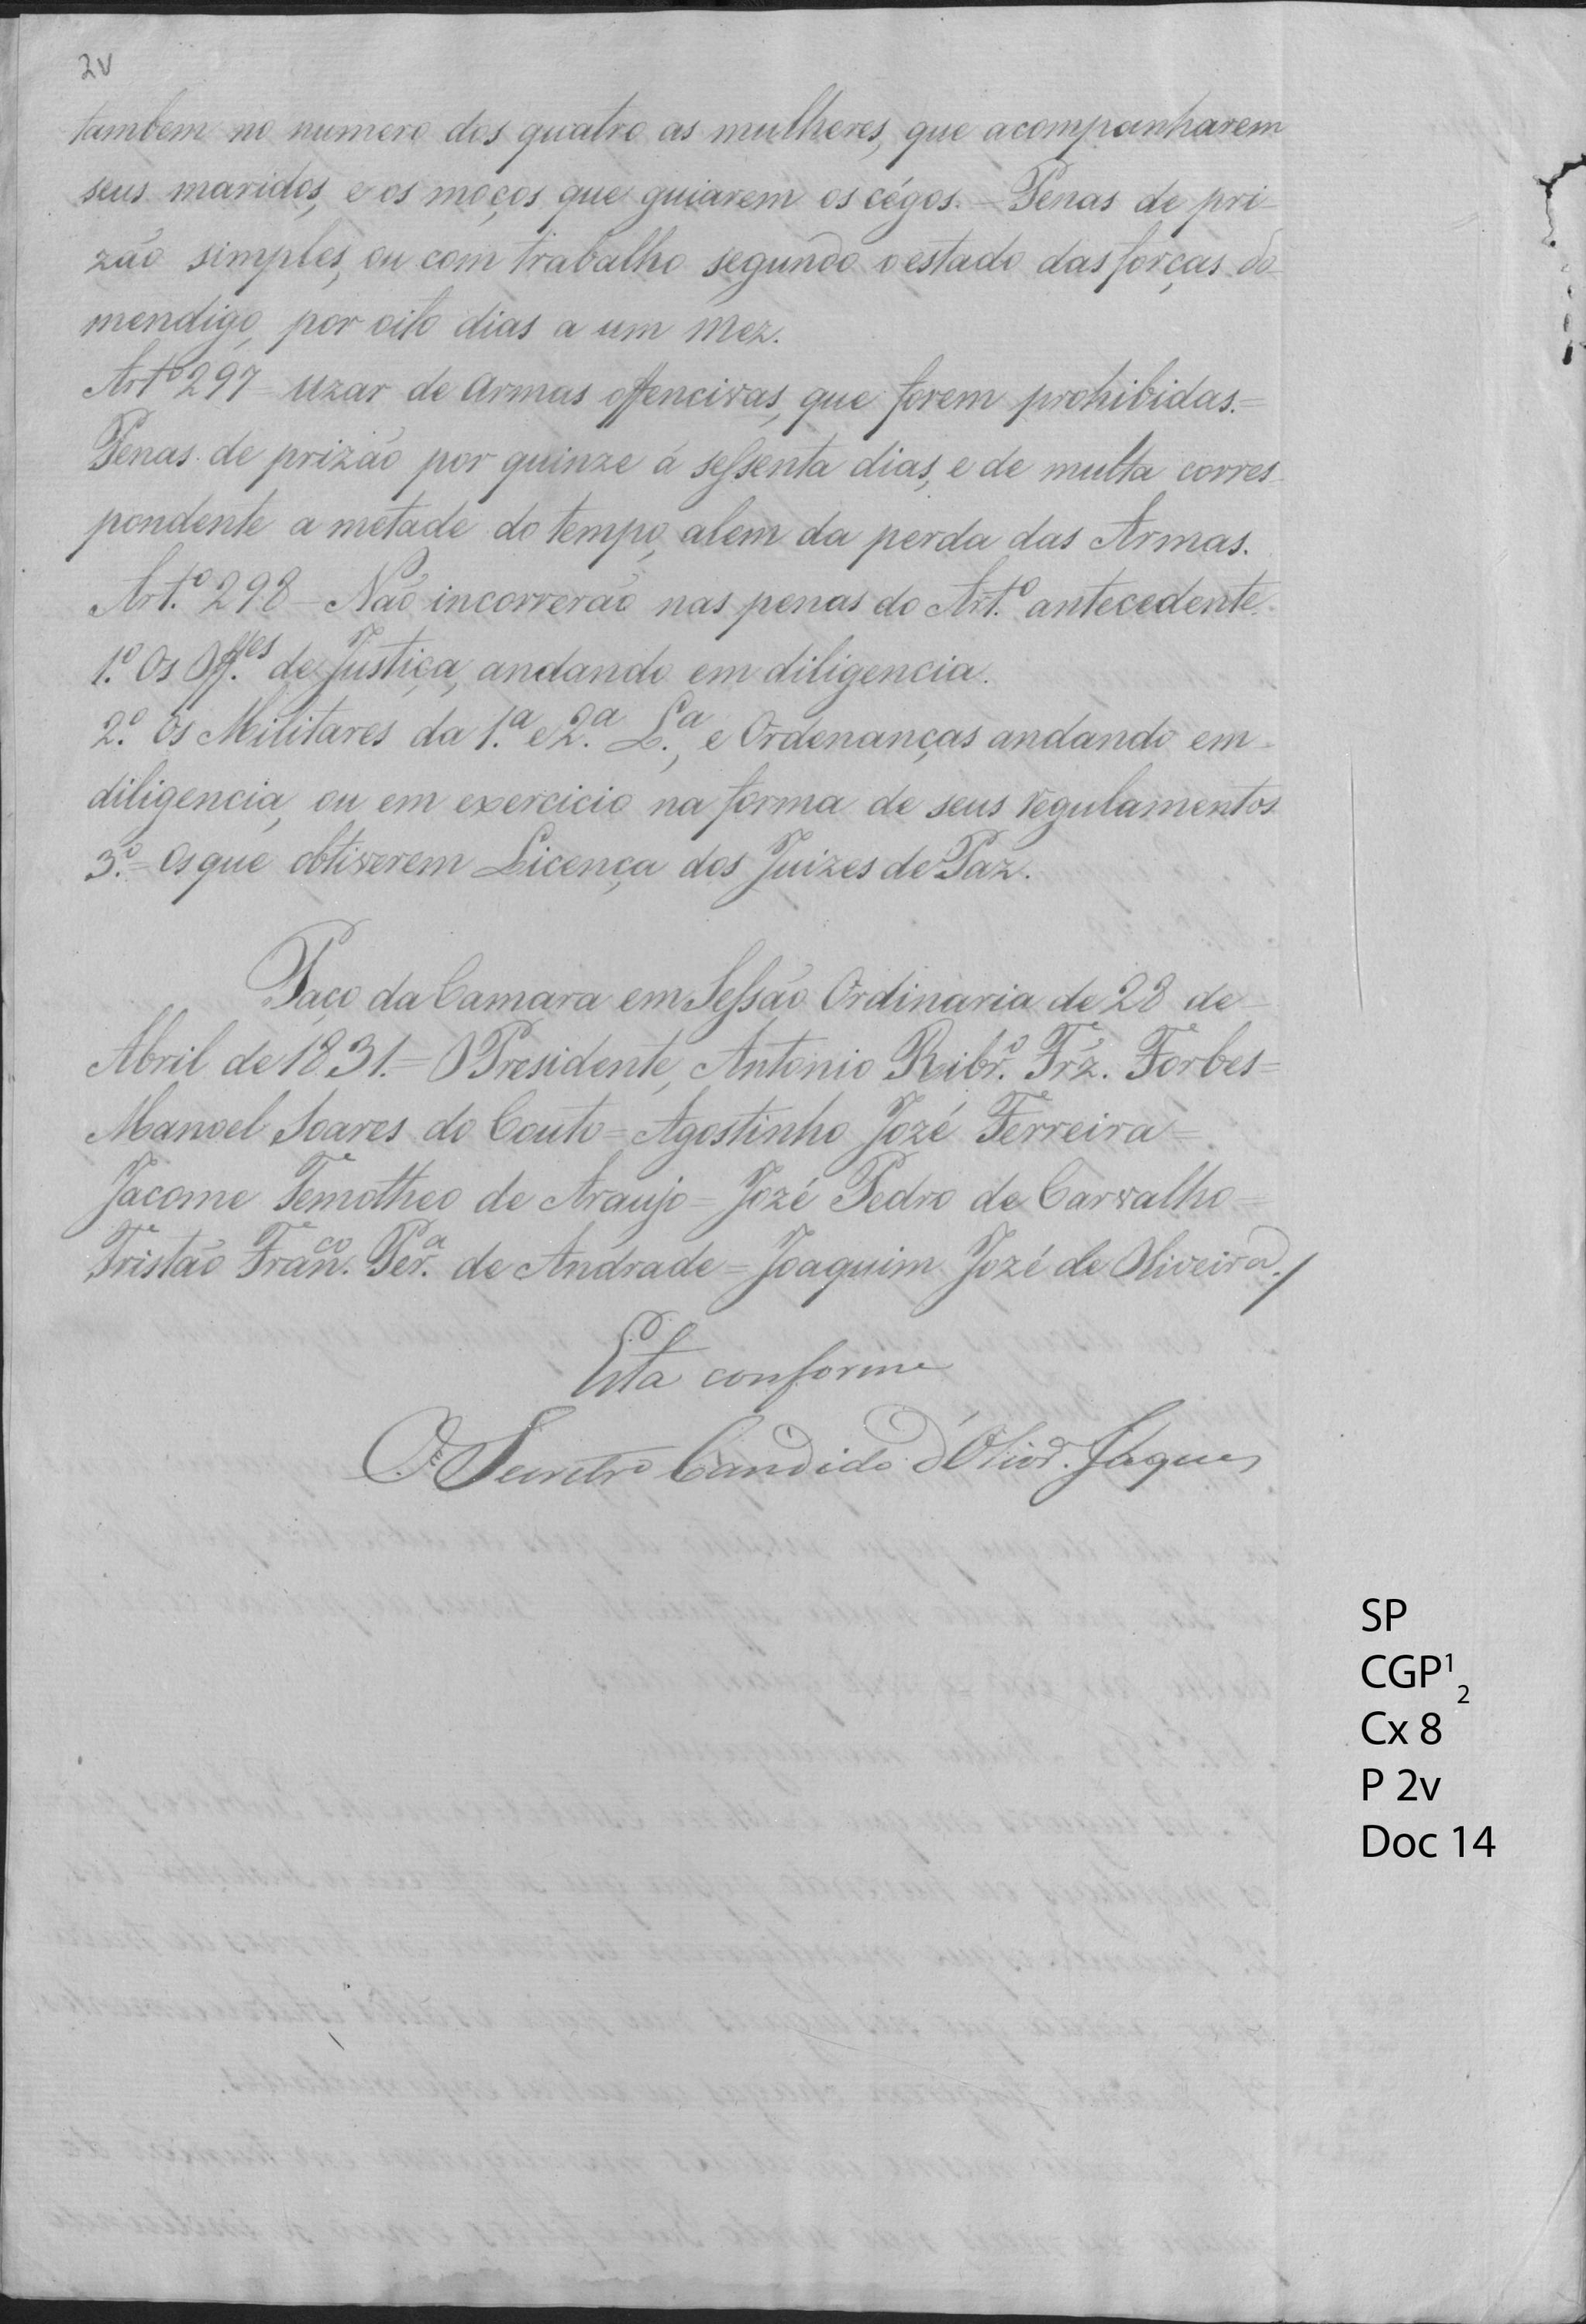 2v
tambem no numero dos quatro as mulheres, que acompanharem
seus maridos, e os moços que guiarem os cégos. – Penas de pri-
zão simples, ou com trabalho segundo o estado das forças do
mendigo, por oito dias a um mez.
Artº 297 – Uzar de Armas offencivas, que forem prohibidas. =
Penas de prizão por quinze á sessenta dias, e de multa corres-
pondente a metade do tempo, alem da perda das Armas.
Art.º 298 – Não incorrerão nas penas do Art.º antecedente.
1.º Os Off.es de Justiça, andando em diligencia.
2.º Os Militares da 1.ª e 2.ª L.ª, e Ordenanças andando em
diligencia, ou em exercicio na forma de seus regulamentos
3.º = Os que obtiverem Licença dos Juizes de Paz.
Paço da Camara em Sessão Ordinaria de 28 de
Abril de 1831. = O Presidente, Antonio Ribr.º Frz. Forbes =
Manoel Soares do Couto = Agostinho Jozé Ferreira =
Jacome Temotheo de Araujo = Jozé Pedro de Carvalho =
Tristão Fran.co Per.a de Andrade = Joaquim Jozé de Oliveira./
Está conforme
O Secretrº Candido d'Olivr.ª Jaques
SP
CGP¹₂
Cx 8
P 2v
Doc 14